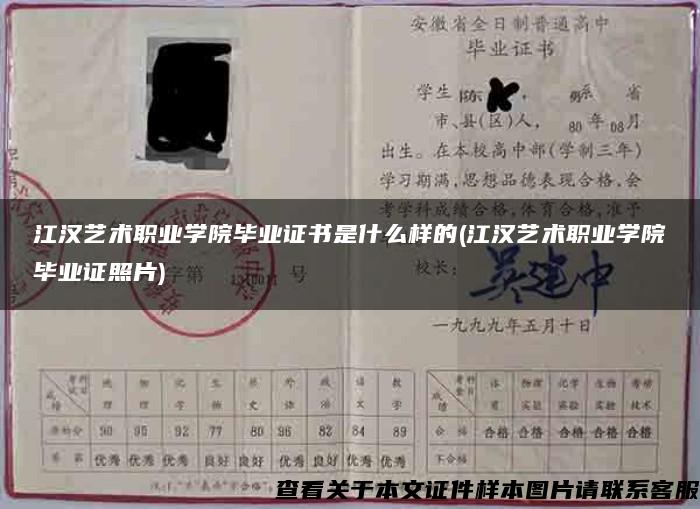 安徽省全日制普通高中
毕业证书
学生 陈 , 男系 省
市、县(区)人, 80年08月
出生。在本校高中部(学制三年)
学习期满,思想品德表现合格,会
考学科成绩合格,体育合格,准予
江汉艺术职业学院毕业证书是什么样的(江汉艺术职业学院
毕业证照片)
字第 号
校长: 吴建中
一九九九年五月十日
成绩 考试科目 地理 物理 化学 生物 历史 外语 政治 语文 数学
90 95 92 77 80 96 82 84 89
优秀 优秀 优秀 良好 良好 优秀 优秀 优秀 优秀
成绩 考查科目 体育 物理实验 化学实验 生物实验 劳动技术
合格 合格 合格 合格 合格 合格
不合格
查看关于本文证件样本图片请联系客服